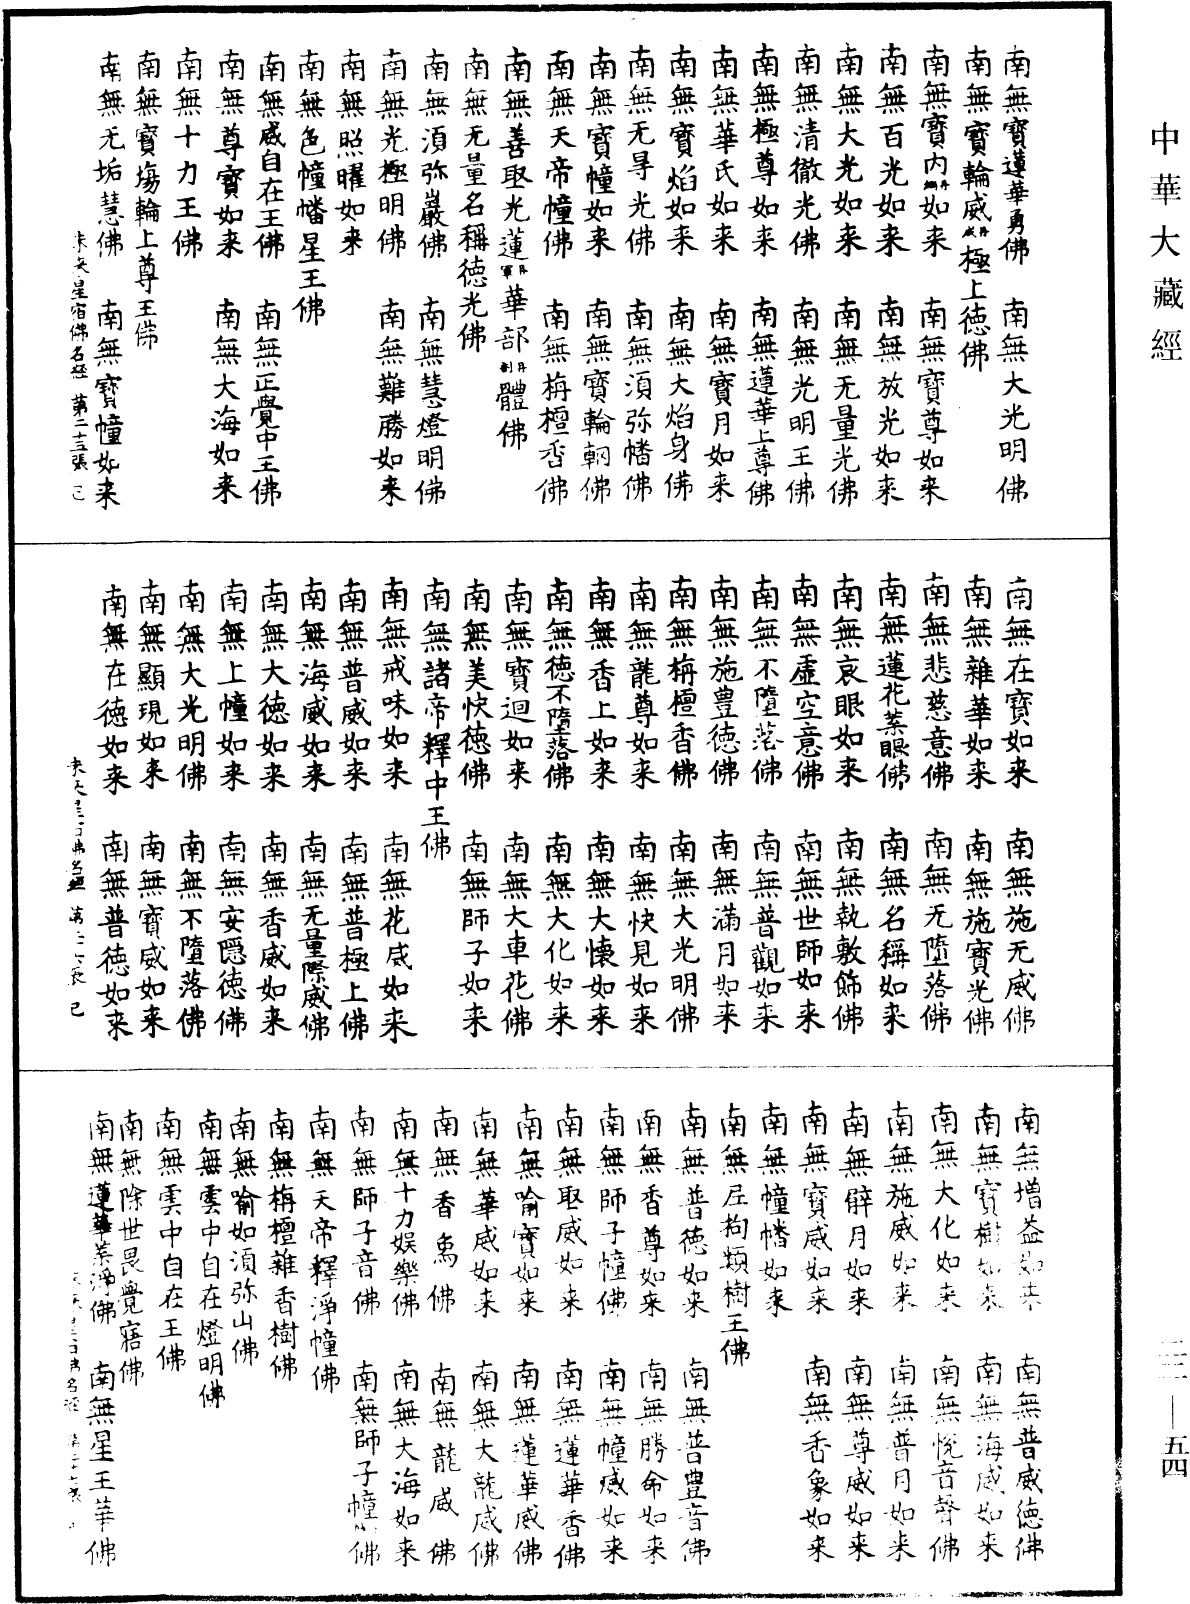 南無寶蓮華勇佛　南無大光明佛
南無寶輪威丹成極上德佛
南無寶内丹網如来　南無寶尊如来
南無百光如来　南無放光如来
南無大光如来　南無无量光佛
南無清徹光佛　南無光明王佛
南無極尊如来　南無蓮華上尊佛
南無華氏如来　南無寶月如来
南無寶焰如来　南無大焰身佛
南無无㝵光佛　南無須弥幡佛
南無寶幢如来　南無寶輪輞佛
南無天帝幢佛　南無栴檀香佛
南無善取光蓮丹軍華部丹剖體佛
南無无量名稱德光佛
南無須弥巖佛　南無慧燈明佛
南無光極明佛　南無難勝如来
南無照曜如来
南無色幢幡星王佛
南無威自在王佛　南無正覺中王佛
南無尊寶如来　南無大海如来
南無十力王佛
南無寶塲輪上尊王佛
南無无垢慧佛　南無寶幢如来
未来星宿佛名經　第二十三張　己
南無在寶如来　南無施无威佛
南無雜華如来　南無施寶光佛
南無悲慈意佛　南無无墮落佛
南無蓮花葉眼佛　南無名稱如来
南無哀眼如来　南無執敷飾佛
南無虚空意佛　南無世師如来
南無不墮落佛　南無普觀如来
南無施豊德佛　南無滿月如来
南無栴檀香佛　南無大光明佛
南無龍尊如来　南無快見如来
南無香上如来　南無大懷如来
南無德不墮落佛　南無大化如来
南無寶迴如来　南無大車花佛
南無美快德佛　南無師子如来
南無諸帝釋中王佛
南無戒味如来　南無花威如来
南無普威如来　南無普極上佛
南無海威如来　南無无量際威佛
南無大德如来　南無香威如来
南無上幢如来　南無安隱德佛
南無大光明佛　南無不墮落佛
南無顯現如来　南無寶威如来
南無在德如来　南無普德如来
南無增益如来　南無普威德佛
南無寶樹如来　南無海威如来
南無大化如来　南無悅音聲佛
南無施威如来　南無普月如来
南無辟月如来　南無尊威如来
南無寶威如来　南無香象如来
南無幢幡如来
南無尼拘類樹王佛
南無普德如来　南無普豊音佛
南無香尊如来　南無勝命如来
南無師子幢佛　南無幢威如来
南無取威如来　南無蓮華香佛
南無喻寶如来　南無蓮華威佛
南無華威如来　南無大龍威佛
南無香象佛　南無龍威佛
南無十力娱樂佛　南無大海如来
南無師子音佛　南無師子幢佛
南無天帝釋淨幢佛
南無栴檀雜香樹佛
南無喻如須弥山佛
南無雲中自在燈明佛
南無雲中自在王佛
南無除世畏覺寤佛
南無蓮華葉淨佛　南無星王華佛
中華大藏經
二二—五四